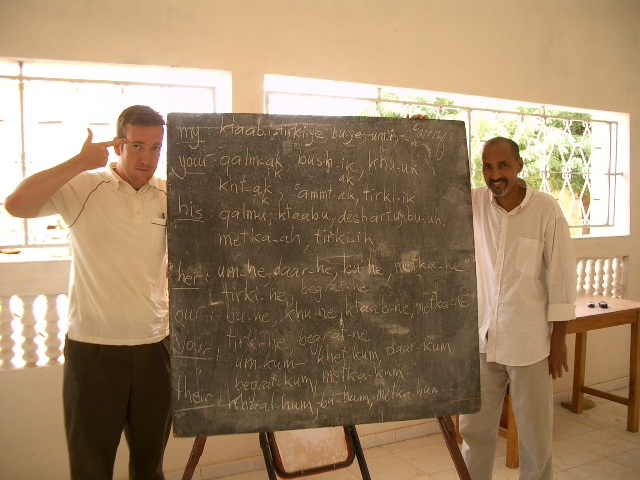 my: ktaabi, tirkiye, buye, umi,
your: qalm-ak, bush-ik, khu-uk
ik ak
knt-ak, ammt-ak, tirki-ik
ik
his: qalmu, ktaabu, deshartu, bu-uh,
metka-ah, tirki-ih
her: um-he, daar-he, bu-he, metka-he
tirki-he, begrat-he
our: bu-ne, khu-ne, ktaab-ne, metka-ne
tirki-ne, begrat-ne
your: um-kum, khet-kum, daar-kum
begrat-kum, metka-kum
their: bu-hum, metka-hum